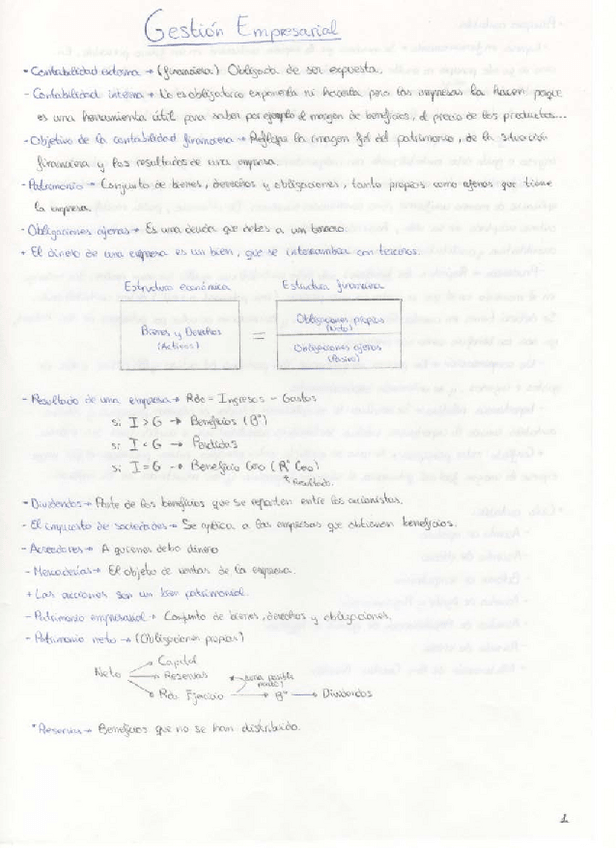 Gestión Empresarial
- Contabilidad externa → (financiera) Obligada de ser expuesta.
- Contabilidad interna → No es obligatorio exponerla ni hacerla pero las empresas la hacen porque
es una herramienta útil para saber por ejemplo el margen de beneficios, el precio de los productos...
- Objetivo de la contabilidad financiera → Refleje la imagen fiel del patrimonio, de la situación
financiera y los resultados de una empresa.
- Patrimonio → Conjunto de bienes, derechos y obligaciones, tanto propias como ajenas que tiene
la empresa.
- Obligaciones ajenas → Es una deuda que debes a un tercero.
+ El dinero de una empresa es un bien, que se intercambia con terceros.
Estructura económica Estructura financiera
Bienes y Derechos
(Activos)
=
Obligaciones propias
(Neto)
Obligaciones ajenas
(Pasivo)
- Resultado de una empresa → Rdo = Ingresos - Gastos
si I > G → Beneficios (Bº)
si I < G → Pérdidas
si I = G → Beneficio Cero (Rº Cero)
* Resultado.
- Dividendos → Parte de los beneficios que se reparten entre los accionistas.
- El impuesto de sociedades → Se aplica a las empresas que obtienen beneficios.
- Acreedores → A quienes debo dinero
- Mercaderías → El objeto de ventas de la empresa.
+ Las acciones son un bien patrimonial.
- Patrimonio empresarial → Conjunto de bienes, derechos y obligaciones.
- Patrimonio neto → (Obligaciones propias)
Neto → Capital
→ Reservas
→ Rdo. Ejercicio → Bº → Dividendos
* Reservas → Beneficios que no se han distribuido.
1